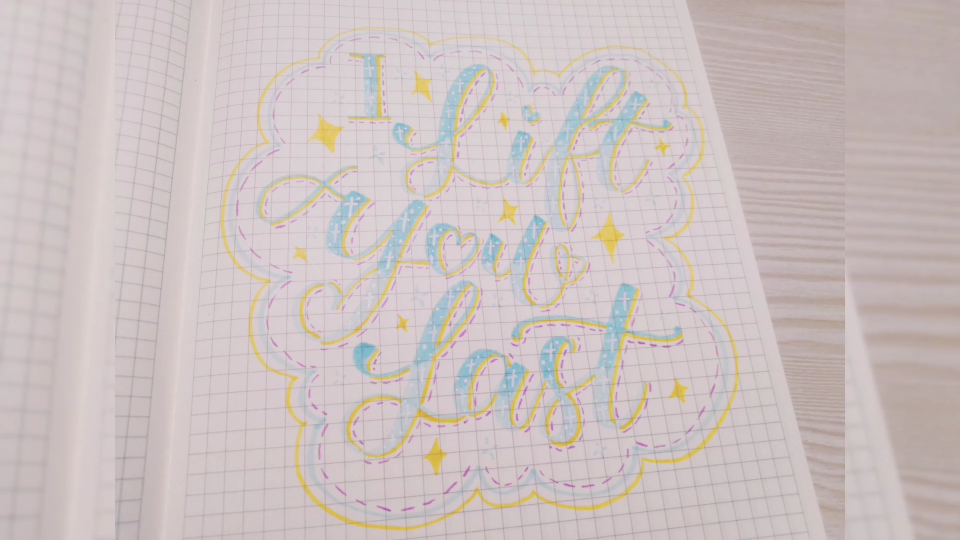 I Lift
You
Last